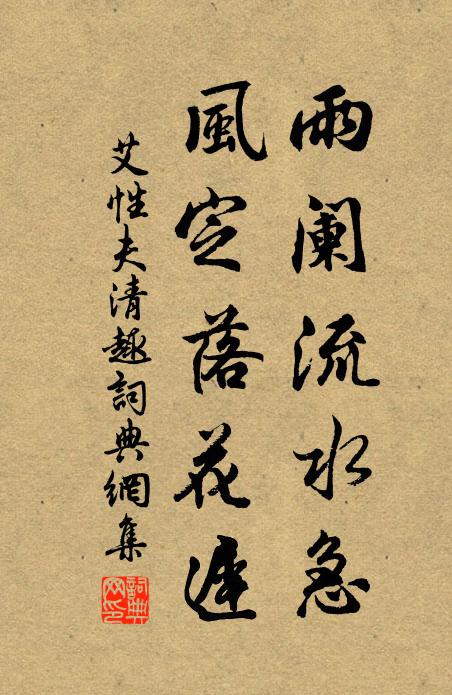 雨阑流水急
風定落花遲
艾性夫清趣詞典網集
詞典網印